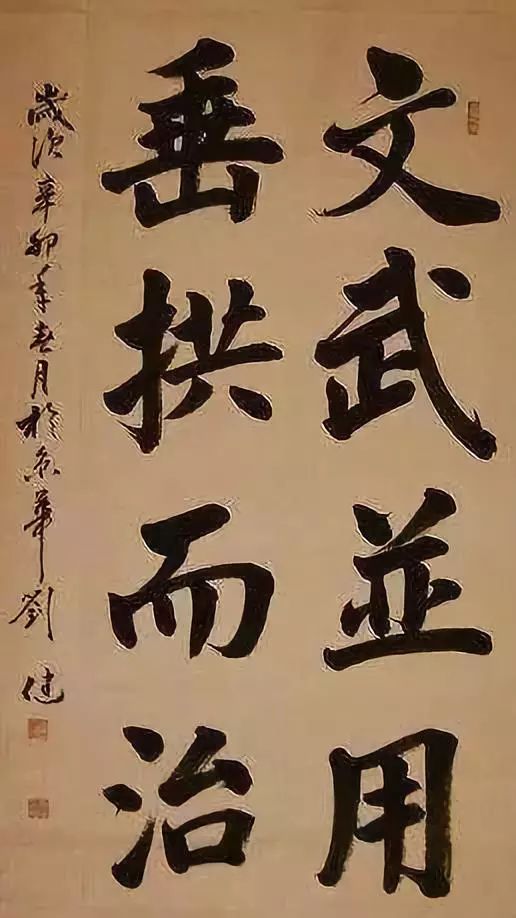 文武並用
垂拱而治
歲次辛卯年春月於京華劉健